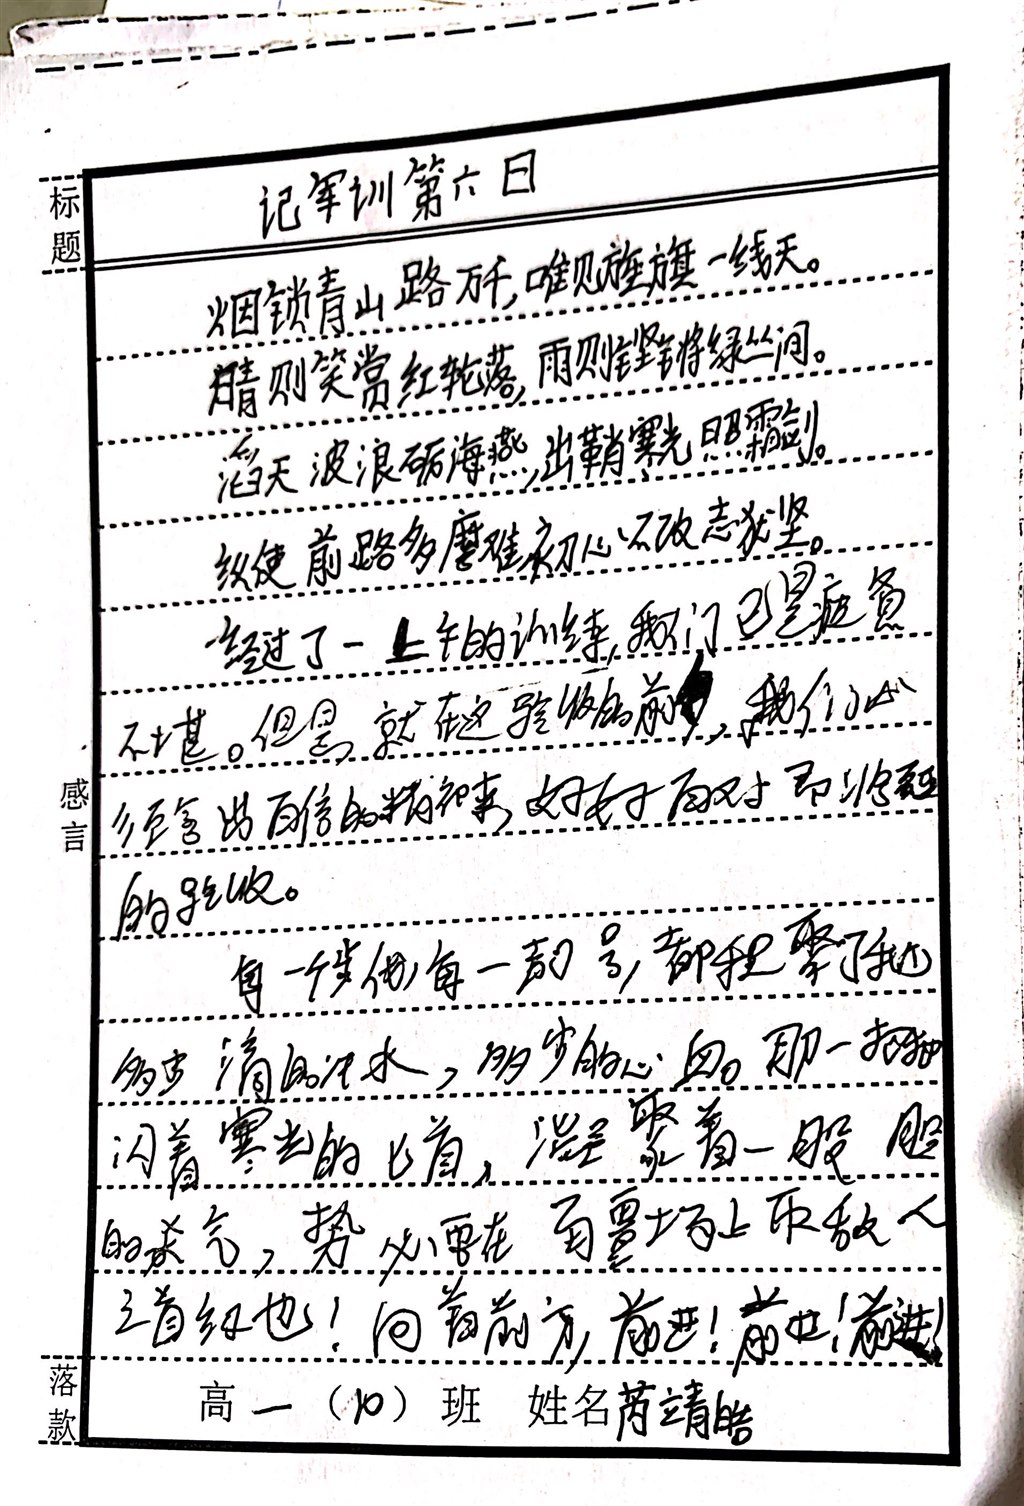 标题
记军训第六日
烟锁青山路万千,唯见旌旗一线天。
晴则笑赏红轮落,雨则坚将绿丛间。
滔天波浪砺海燕,出鞘寒光照霜剑。
纵使前路多磨难,初心不改志犹坚。
经过了一上午的训练,我们已是疲惫
不堪。但是,就在这验收的前夕,我们必
须拿出百倍的精神来,好好面对即将到
的验收。
感言
每一个步伐,每一声口号,都积聚了我
多少滴的汗水,多少的心血。那一把把
闪着寒光的匕首,凝聚着一股股
的杀气,势必要在疆场上取敌人
之首级也!向着前方,前进!前进!前进!
落款
高一(10)班 姓名芮靖皓